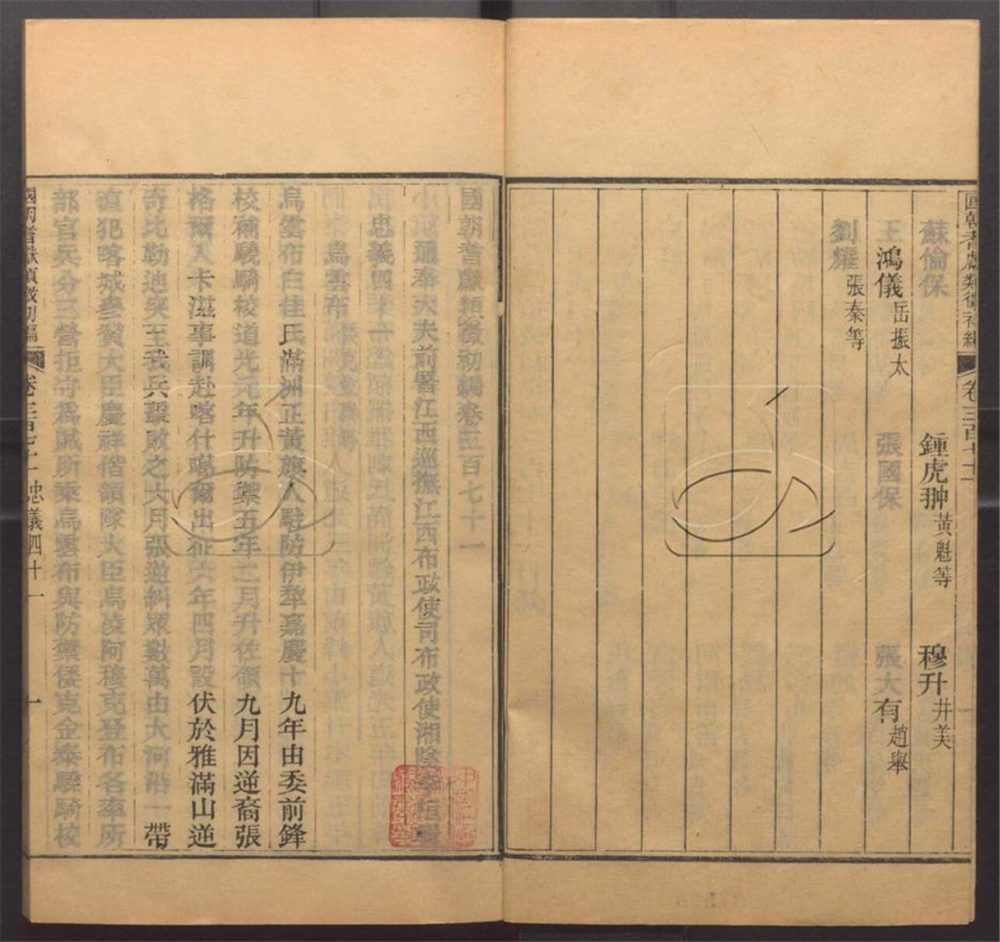 蘇倫保 鍾虎翀黃魁等 穆升井美
王鴻儀岳振太 張國保 張大有趙舉
劉耀張秦等
國朝耆獻類徵初編卷三百七十一
通奉大夫前署江西巡撫江西布政使司布政使湘陰李桓輯
忠義四十一
烏雲布
烏雲布白佳氏滿洲正黃旗人駐防伊犂嘉慶十九年由委前鋒
校補驍騎校道光元年升防禦五年二月升佐領九月因逆裔張
格爾入卡滋事調赴喀什噶爾出征六年四月設伏於雅滿山逆
奇比勒迪突至我兵擊敗之六月張逆糾眾數萬由大河沿一帶
直犯喀城參贊大臣慶祥偕領隊大臣烏凌阿穆克登布各率所
部官兵分三營拒守為賊所乘烏雲布與防禦倭克金泰驍騎校
國朝耆獻類徵初編 卷三百七十一 忠義四十一 一